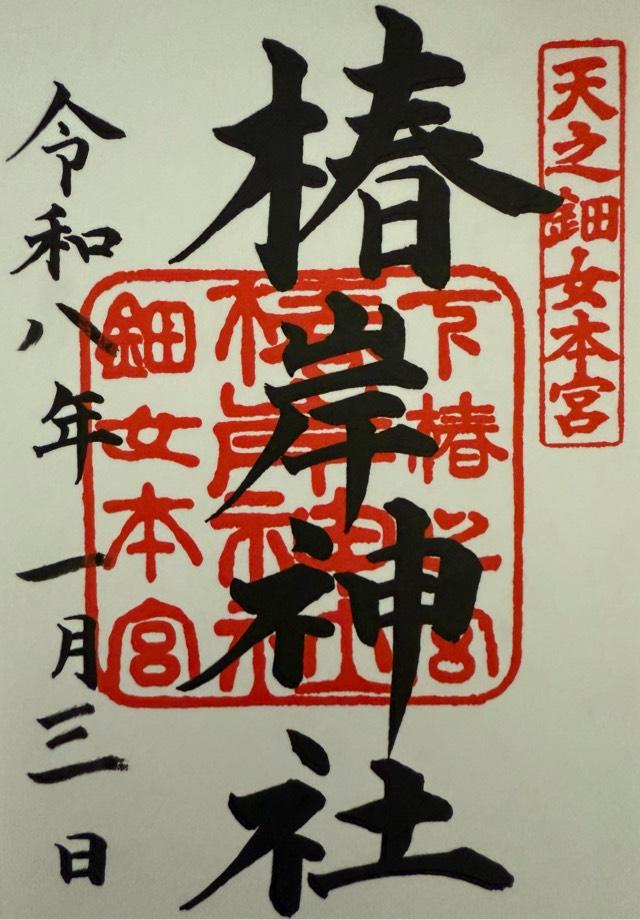 天之鈿女本宮
椿岸神社
下椿
椿岸神社
鈿女本宮
令和八年一月三日